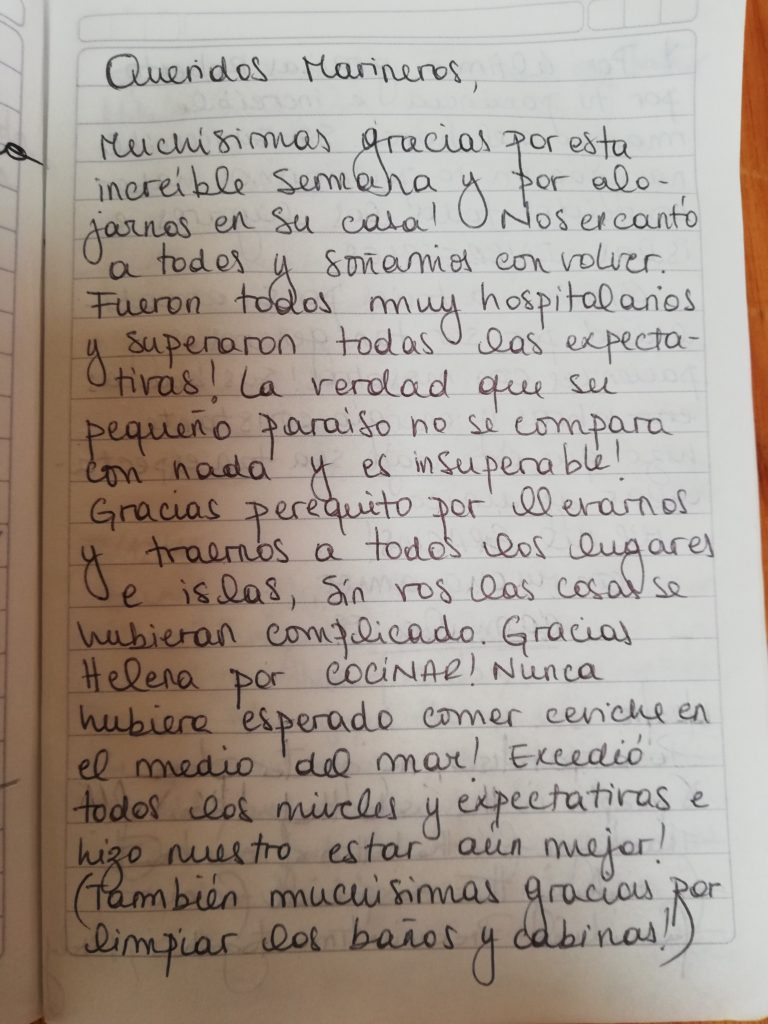 Queridos Marineros,
Muchísimas gracias por esta
increíble semana y por alo-
jarnos en su casa! Nos encantó
a todes y soñamos con volver.
Fueron todos muy hospitalarios
y superaron todas las expecta-
tivas! La verdad que su
pequeño paraiso no se compara
con nada y es insuperable!
Gracias perequito por llevarnos
y traernos a todos los lugares
e islas, Sin vos las cosas se
hubieran complicado. Gracias
Helena por COCINAR! Nunca
hubiera esperado comer ceviche en
el medio del mar! Excedió
todos los niveles y expectativas e
hizo nuestro estar aún mejor!
(También muchisimas gracias por
limpiar los baños y cabinas!)